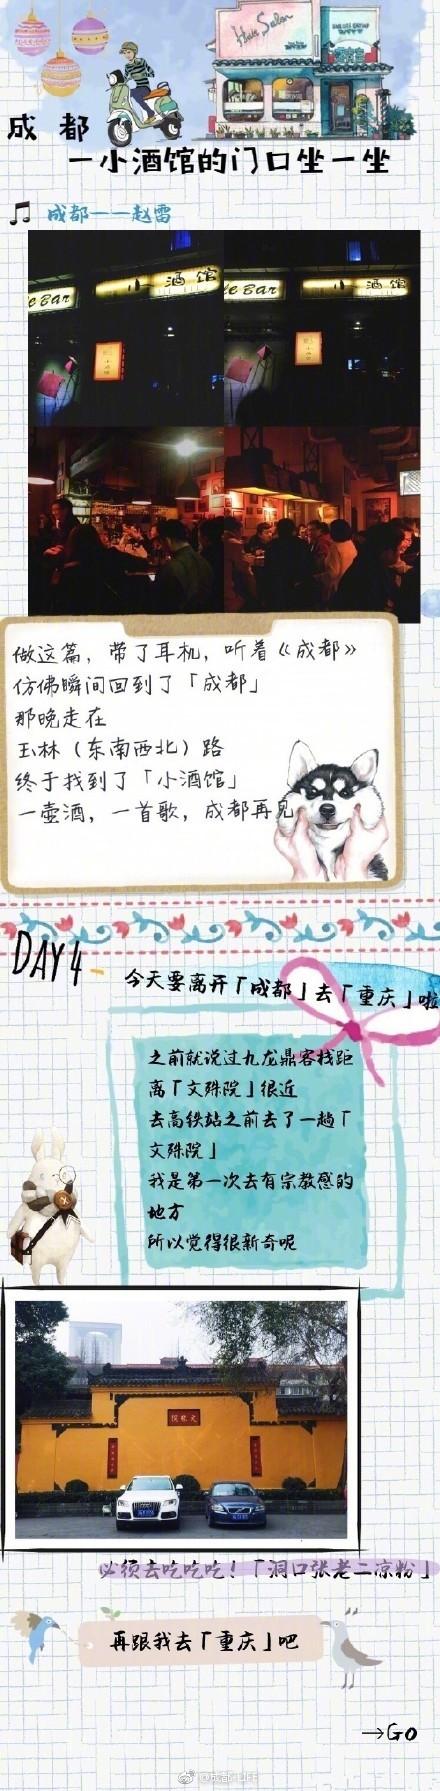 Hair Salon
成都
一小酒馆的门口坐一坐
成都——赵雷
le Bar
小酒馆
le Bar
小酒馆
小酒馆
小酒馆
做这篇，带了耳机，听着《成都》
仿佛瞬间回到了「成都」
那晚走在
玉林（东南西北）路
终于找到了「小酒馆」
一壶酒，一首歌，成都再见
DAY 4
今天要离开「成都」去「重庆」啦
之前就说过九龙鼎客栈距
离「文殊院」很近
去高铁站之前去了一趟「
文殊院」
我是第一次去有宗教感的
地方
所以觉得很新奇呢
院殊文
必须去吃吃吃！「洞口张老二凉粉」
再跟我去「重庆」吧
→GO
@成都-LIFE